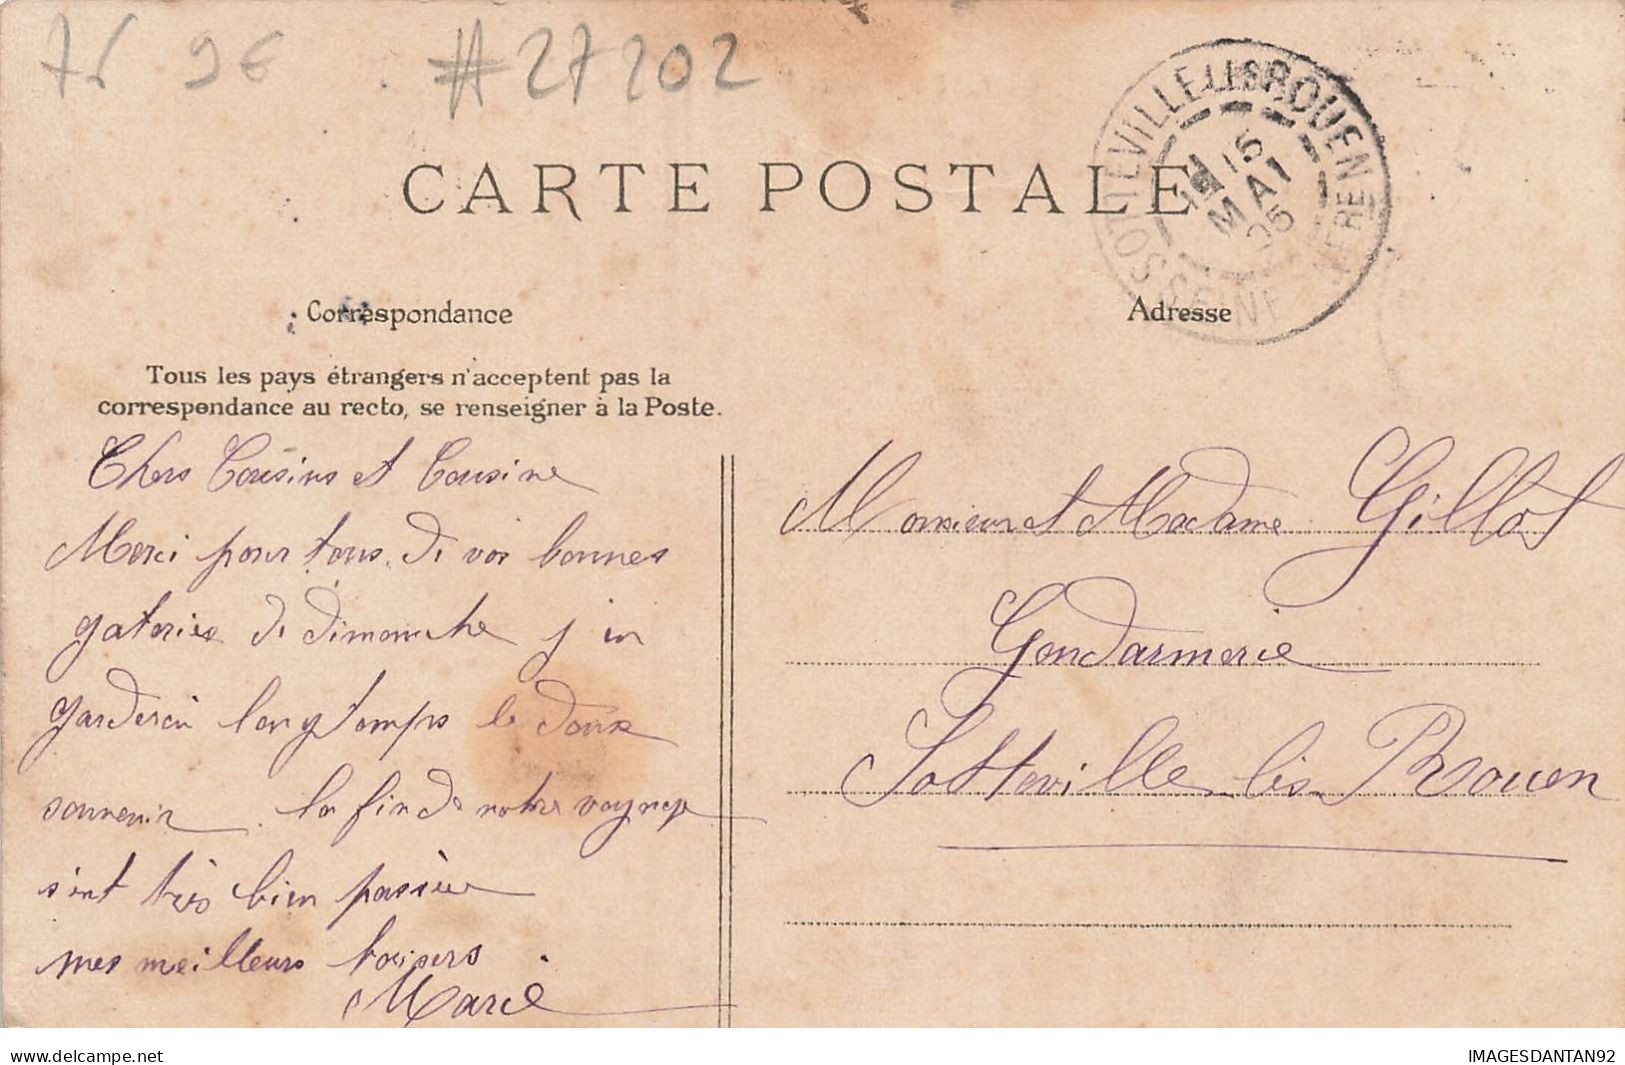 76 9€ #27202
CARTE POSTALE
SOTTEVILLE LES ROUEN
15
MAI
05
SEINE INFRE
Correspondance
Adresse
Tous les pays étrangers n'acceptent pas la
correspondance au recto, se renseigner à la Poste.
Chers Cousins et Cousine
Merci pour tous. de vos bonnes
gateries de dimanche j en
garderai longtemps le doux
souvenir la fin de notre voyage
s'est très bien passée
mes meilleurs baisers
Marie
Monsieur et Madame Gillot
Gendarmerie
Sotteville les Rouen
delcampe.net
IMAGESDANTAN92